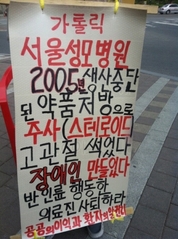 가톨릭
서울성모병원
2005년 생산중단
된 약품처방으로
주사(스테로이드)
고관절 썩었다
장애인 만들었다
반인륜 행동한
의료진 사퇴하라
공공의이익과 환자